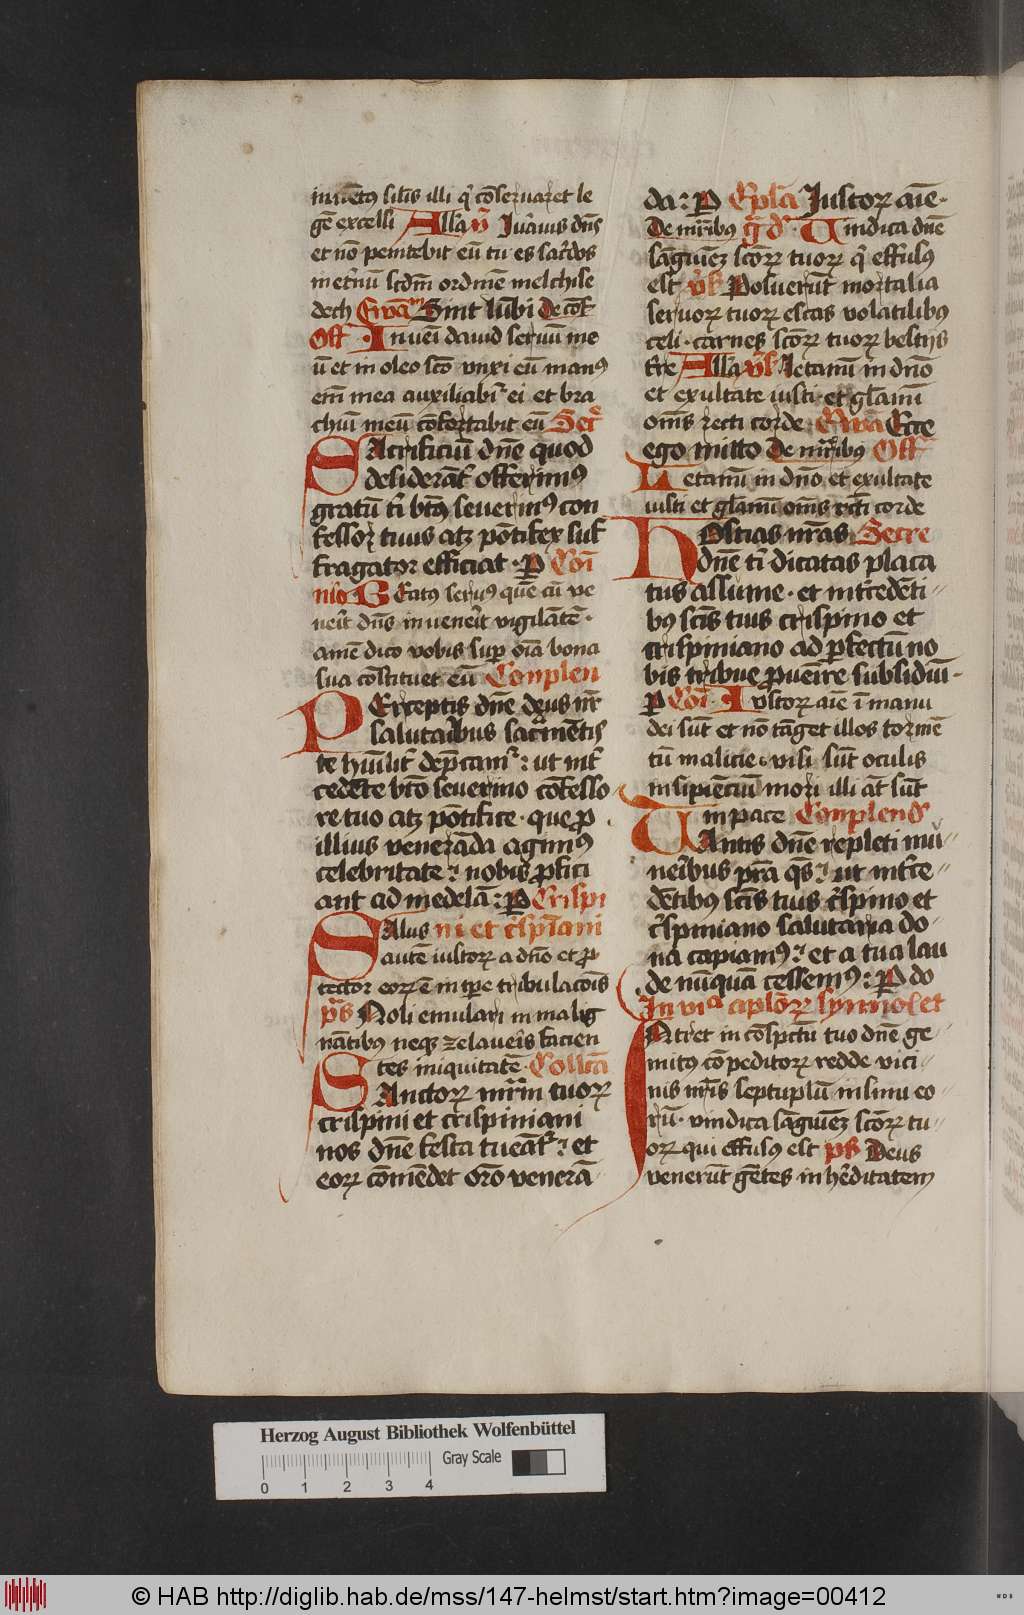 inue᷑tus silis illi q̇ co᷑seruaret le
ge᷑ excelsi Alla v̄ Iurauit dn̄s
et no᷑ penitebit eu᷑ tu es sac̉dos
inet̉nu᷑ scdm̄ ordine᷑ melchise
dech Ewan̄ Sint lu᷑bi De co᷑f
Off Inueni dauid seruu᷑ me
u᷑ et in oleo sc̄o vnxi eu᷑ manꝰ
em̄ mea auxiliabit̉ ei et bra
chiu᷑ meu᷑ co᷑fortabit eu᷑ Sec̉
Sacrificiu᷑ dn̄e quod
desiderāt offerimꝰ
gratu᷑ t̄ bt̄ꝰ seuerinꝰ con
fessor tuus atqꝫ po᷑tifex suf
fragator efficiat · P Co᷑i
nio Beatus seruꝰ que᷑ cu᷑ ve
nerit dn̄s inuenerit vigila᷑te᷑ ·
amē dico vobis sup̄ o᷑ia bona
sua co᷑stituet eu᷑ Conplen
Perceptis dn̄e deus nr̄
salutaribus sacramētis
te hu᷑ilit̉ dep̄camur : ut int̉
cedēte bt̄o seuerino co᷑fesso
re tuo atqꝫ po᷑tifice · que p̄
illius venerāda agimus
celebritate : nobis p̄fici
ant ad medelā : P Crispi
Salus ni et c̉spiniani
autē iustorꝫ a dn̄o et p̄
tector eorꝫ ē in tp̄e tribulacōis
p̄s Noli emulari in malig
nātibus neqꝫ zelaueris facien
tes iniquitatē Collcā
Sanctorꝫ mr̄m tuorꝫ
crispini et crispiniani
nos dn̄e festa tueāt̉ : et
eorꝫ cōmēdet or̄o venerā
da : P Epl̄a Iustorꝫ aīe ·
De mr̄ibus gͣd̉ · Vindica dn̄e
sāguinēꝫ sc̄orꝫ tuorꝫ q̇ effusꝰ
est v̉s Posuerūt mortalia
seruorꝫ tuorꝫ escas volatilibꝰ
celi · carnes sc̄orꝫ tuorꝫ bestijs
tr̄e Alla v̉s Letamī in dn̄o
et exultate iusti · et gl̄amī
om̄s recti corde · Ewā Ecce
ego mitto De mr̄ibus Off
Letamī in dn̄o et exultate
iusti et gl̄amī om̄s rc̄ti corde
Hostias nr̄as Secre
dn̄e t̄ dicatas placa
tus assume · et int̉cedēti
bꝰ sc̄is tuis crispino et
crispiniano ad p̄fectū no
bis tribue p̄uenire subsidiū ·
P Co᷑i · Iustorꝫ aīe ī manu
dei sūt et nō tāget illos tormē
tū malicie · visi sūt oculis
insipiēciū mori illi at̄ sūt
in pace Conplend̉
Vantis dn̄e repleti mu
neribus p̄ra qs̄ : ut int̉ce
dētibꝰ sc̄is tuis c̉spino et
c̉spiniano salutaria do
na capiamꝰ : et a tua lau
de nūquā cessemꝰ : P do
In viͣ aplorꝫ symōis et
Intret in cōspectu tuo dn̄e ge
mitus cōpeditorꝫ redde vici
nis nr̄is septuplū in sinu eo
rū · vindica sāguinēꝫ sc̄orꝫ tu
orꝫ qui effusus est ps̄ Deus
venerūt gētes in h̉editatem
Herzog August Bibliothek Wolfenbüttel
Gray Scale
0 1 2 3 4
© HAB http://diglib.hab.de/mss/147-helmst/start.htm?image=00412